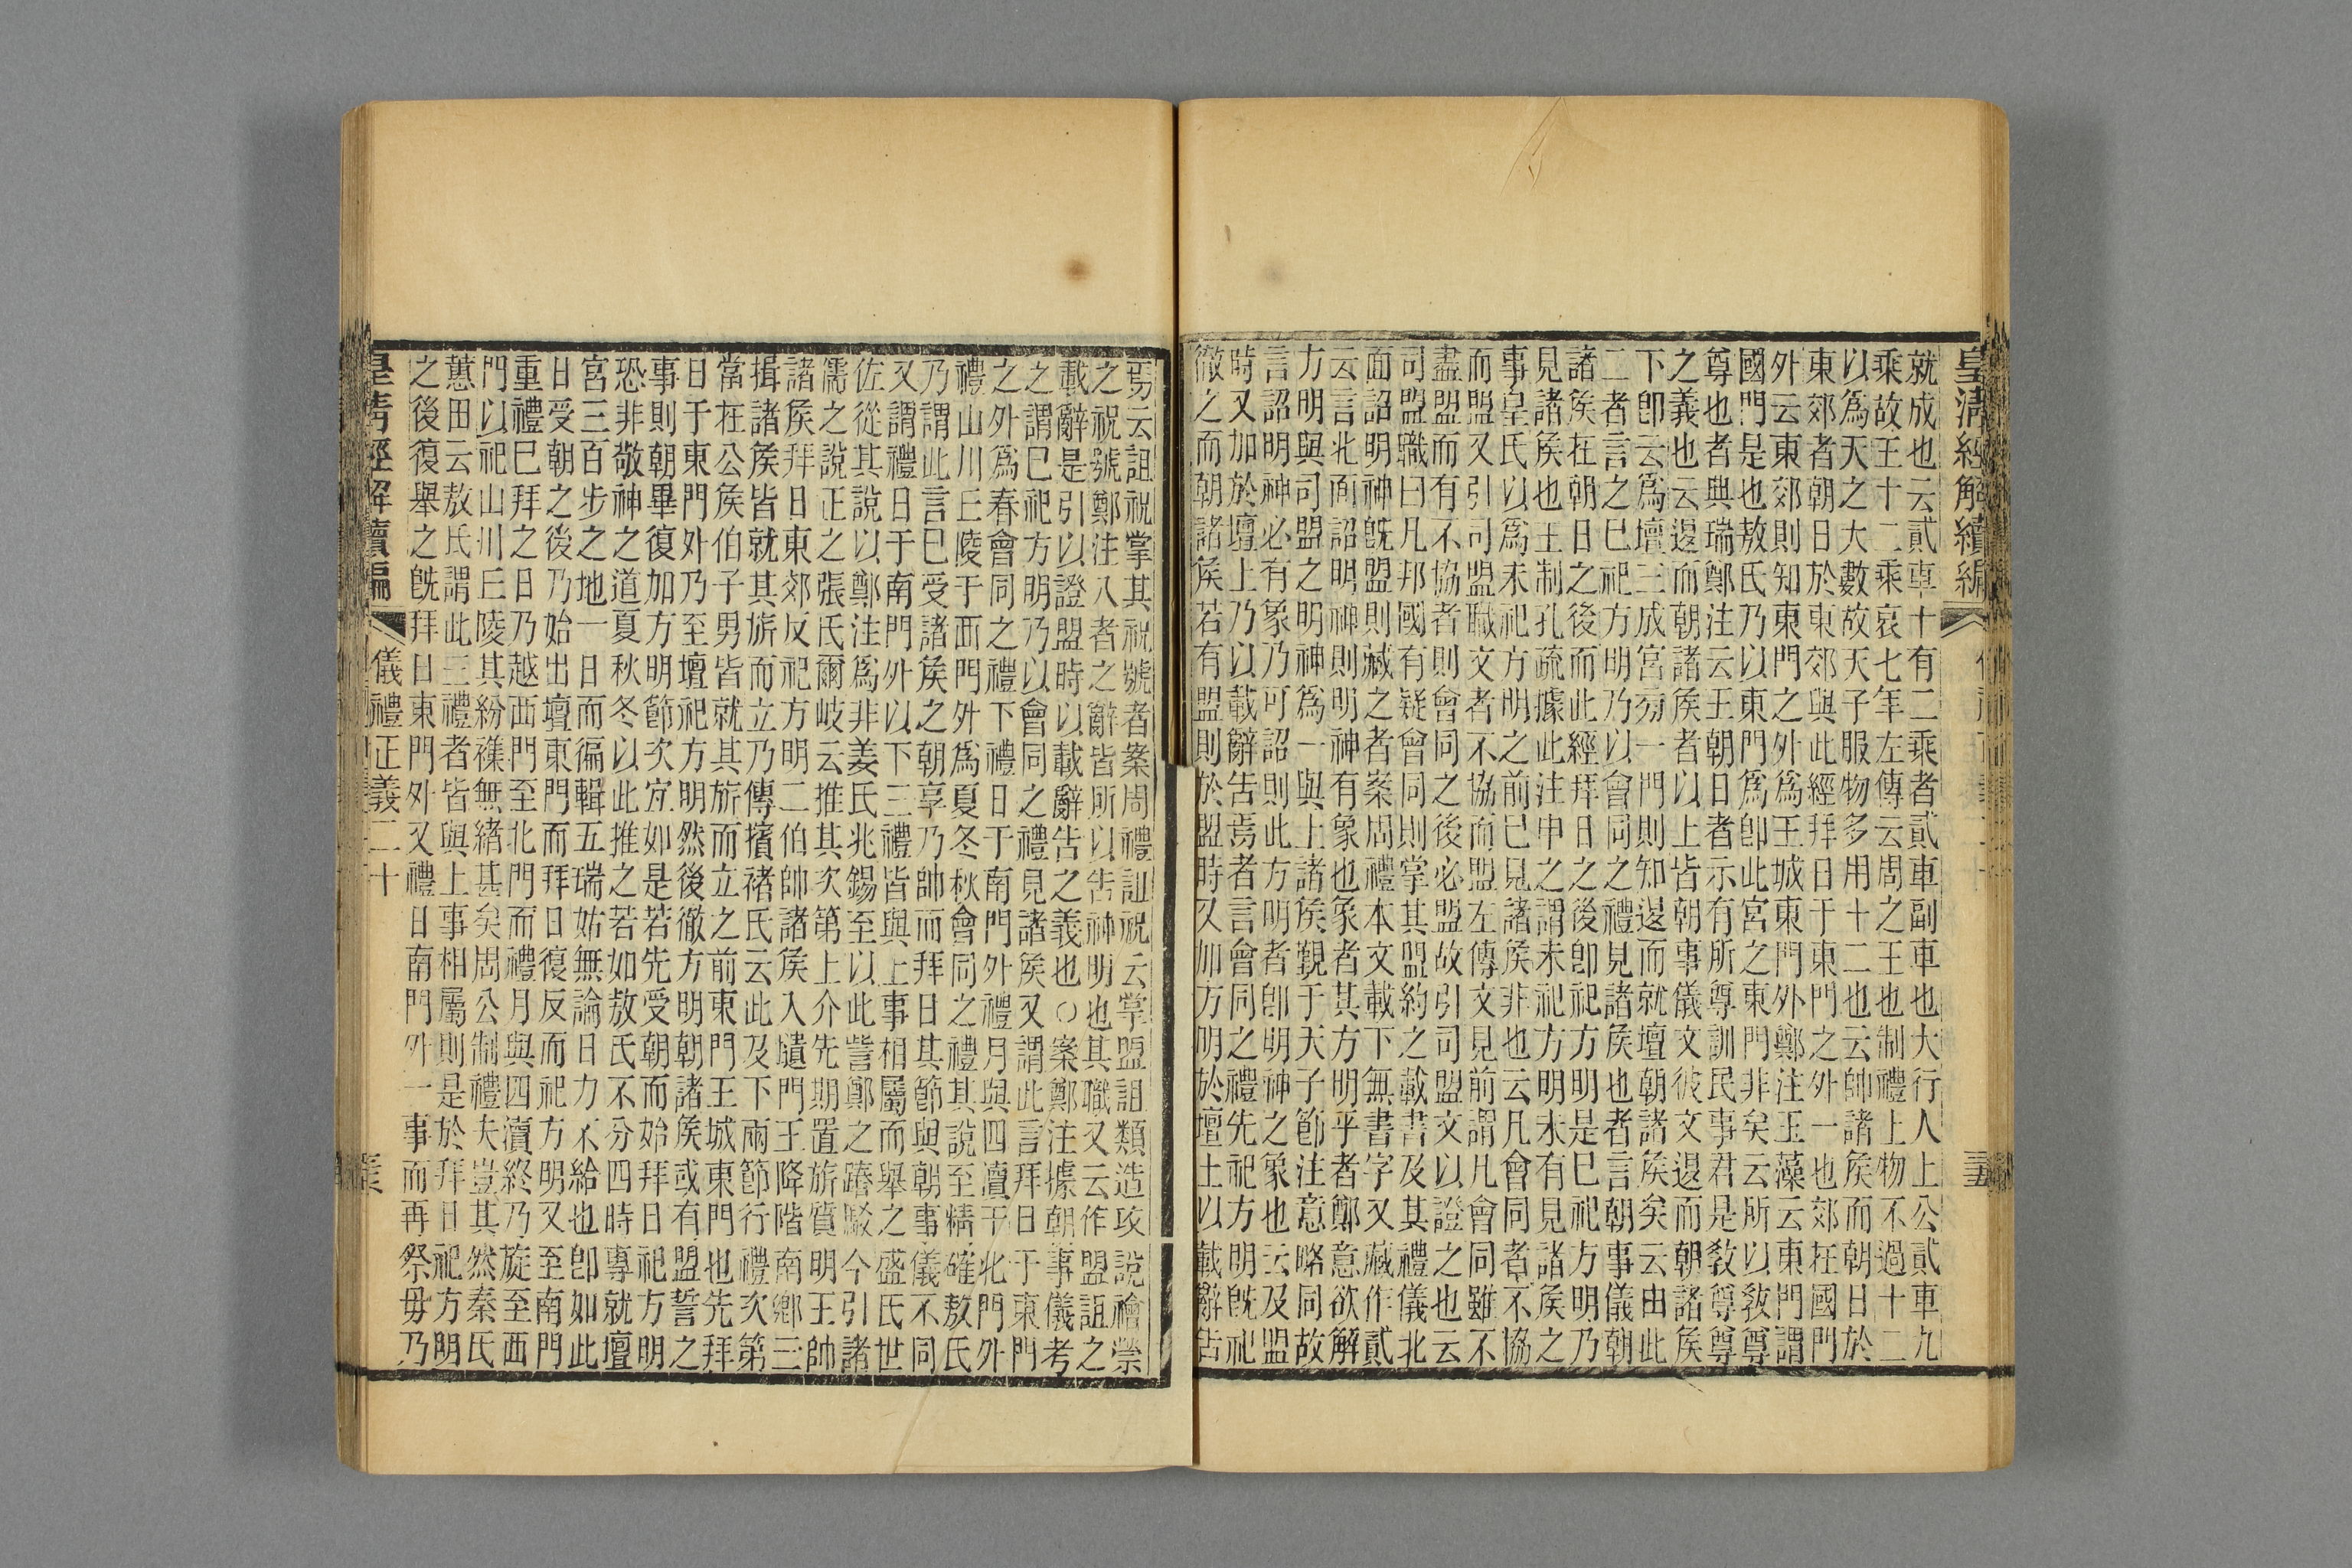 皇清經解續編
就成也云貳車十有二乘者貳車副車也大行人上公貳車九
乘故王十二乘哀七年左傳云周之王也制禮上物不過十二
以爲天之大數故天子服物多用十二也云帥諸矦而朝日於
東郊者朝日於東郊與此經拜日于東門之外一也郊在國門
外云東郊則知東門之外爲王城東門外鄭注玉藻云東門謂
國門是也敖氏乃以東門爲卽此宮之東門非矣云所以敎尊
尊也者與瑞鄭注云王朝日者示有所尊訓民事君是敎尊尊
之義也云退而朝諸矦者以上皆朝事儀文彼文退而朝諸矦
下卽云爲壇三成宮㫄一門則知退而就壇朝諸矦矣云由此
二者言之已祀方明乃以會同之禮見諸矦也者言朝事儀朝
諸矦在朝日之後而此經拜日之後卽祀方明是已祀方明乃
見諸矦也王制孔疏據此注申之謂未祀方明未有見諸矦之
事皇氏以爲未祀方明之前已見諸矦非也云凡會同者不協
而盟又引司盟職文者不協而盟左傳文見前謂凡會同雖不
盡盟而有不協者則會同之後必盟故引司盟文以證之也云
司盟職曰凡邦國有疑會同則掌其盟約之載書及其禮儀北
面詔明神旣盟則藏之者案周禮本文載下無書字又藏作貳
云言北面詔明神則明神有象也象者其方明乎者鄭意欲解
方明與司盟之明神爲一與上諸矦覲于天子節注意略同故
言詔明神必有象乃可詔則此方明者卽明神之象也云及盟
時又加於壇上乃以載辭告焉者言會同之禮先祀方明旣祀
徹之而朝諸矦若有盟則於盟時又加方明於壇上以載辭告
焉云詛祝掌其祝號者案周禮詛祝云掌盟詛類造攻說禬禜
之祝號鄭注八者之辭皆所以告神明也其職又云作盟詛之
載辭是引以證盟時以載辭告之義也○案鄭注據朝事儀考
之謂已祀方明乃以會同之禮見諸矦又謂此言拜日于東門
之外爲春會同之禮下禮日于南門外禮月與四瀆于北門外
禮山川丘陵于西門外爲夏冬秋會同之禮其說至精確敖氏
乃謂此言已受諸矦之朝享乃帥而拜日其節與朝事儀不同
又謂禮日于南門外以下三禮皆與上事相屬而舉之盛氏世
佐從其說以鄭注爲非姜氏兆錫至以此訾鄭之躋駁今引諸
儒之說正之張氏爾岐云推其次第上介先期置旂質明王帥
諸矦拜日東郊反祀方明二伯帥諸矦入壝門王降階南鄉三
揖諸矦皆就其旂而立乃傳擯褚氏云此及下兩節行禮次第
當在公矦伯子男皆就其旂而立之前東門王城東門也先拜
日于東門外乃至壇祀方明然後徹方明朝諸矦或有盟誓之
事則朝畢復加方明節次宐如是若先受朝而始拜日祀方明
恐非敬神之道夏秋冬以此推之若如敖氏不分四時專就壇
宮三百步之地一日而徧輯五瑞姑無論日力不給也卽如此
日受朝之後乃始出壇東門而拜日復反而祀方明又至南門
重禮已拜之日乃越西門至北門而禮月與四瀆終乃旋至西
門以祀山川丘陵其紛襍無緒甚矣周公制禮夫豈其然秦氏
蕙田云敖氏謂此三禮者皆與上事相屬則是於拜日祀方明
之後復舉之旣拜日東門外又禮日南門外一事而再祭毋乃
皇清經解續編
儀禮正義二十